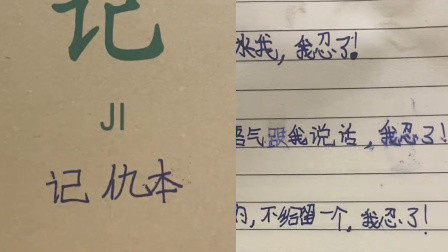 记
JI
记仇本
我，我忍了！
语气跟我说话，我忍了！
不给留一个，我忍了！